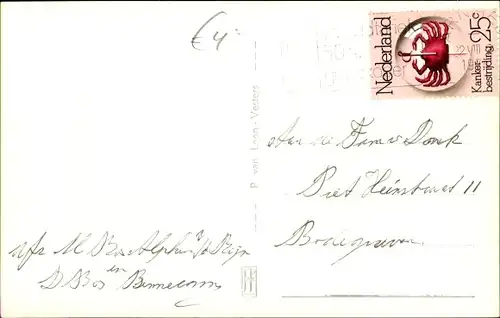 €4-
Nederland
25c
Kanker-
bestrijding
P. van Loon-Vesters
Aan de Fam v Donk
Piet Heinstraat 11
Bodegraven
afz M Bos Alphen a/d Rijn
en
D Bos Bennecom